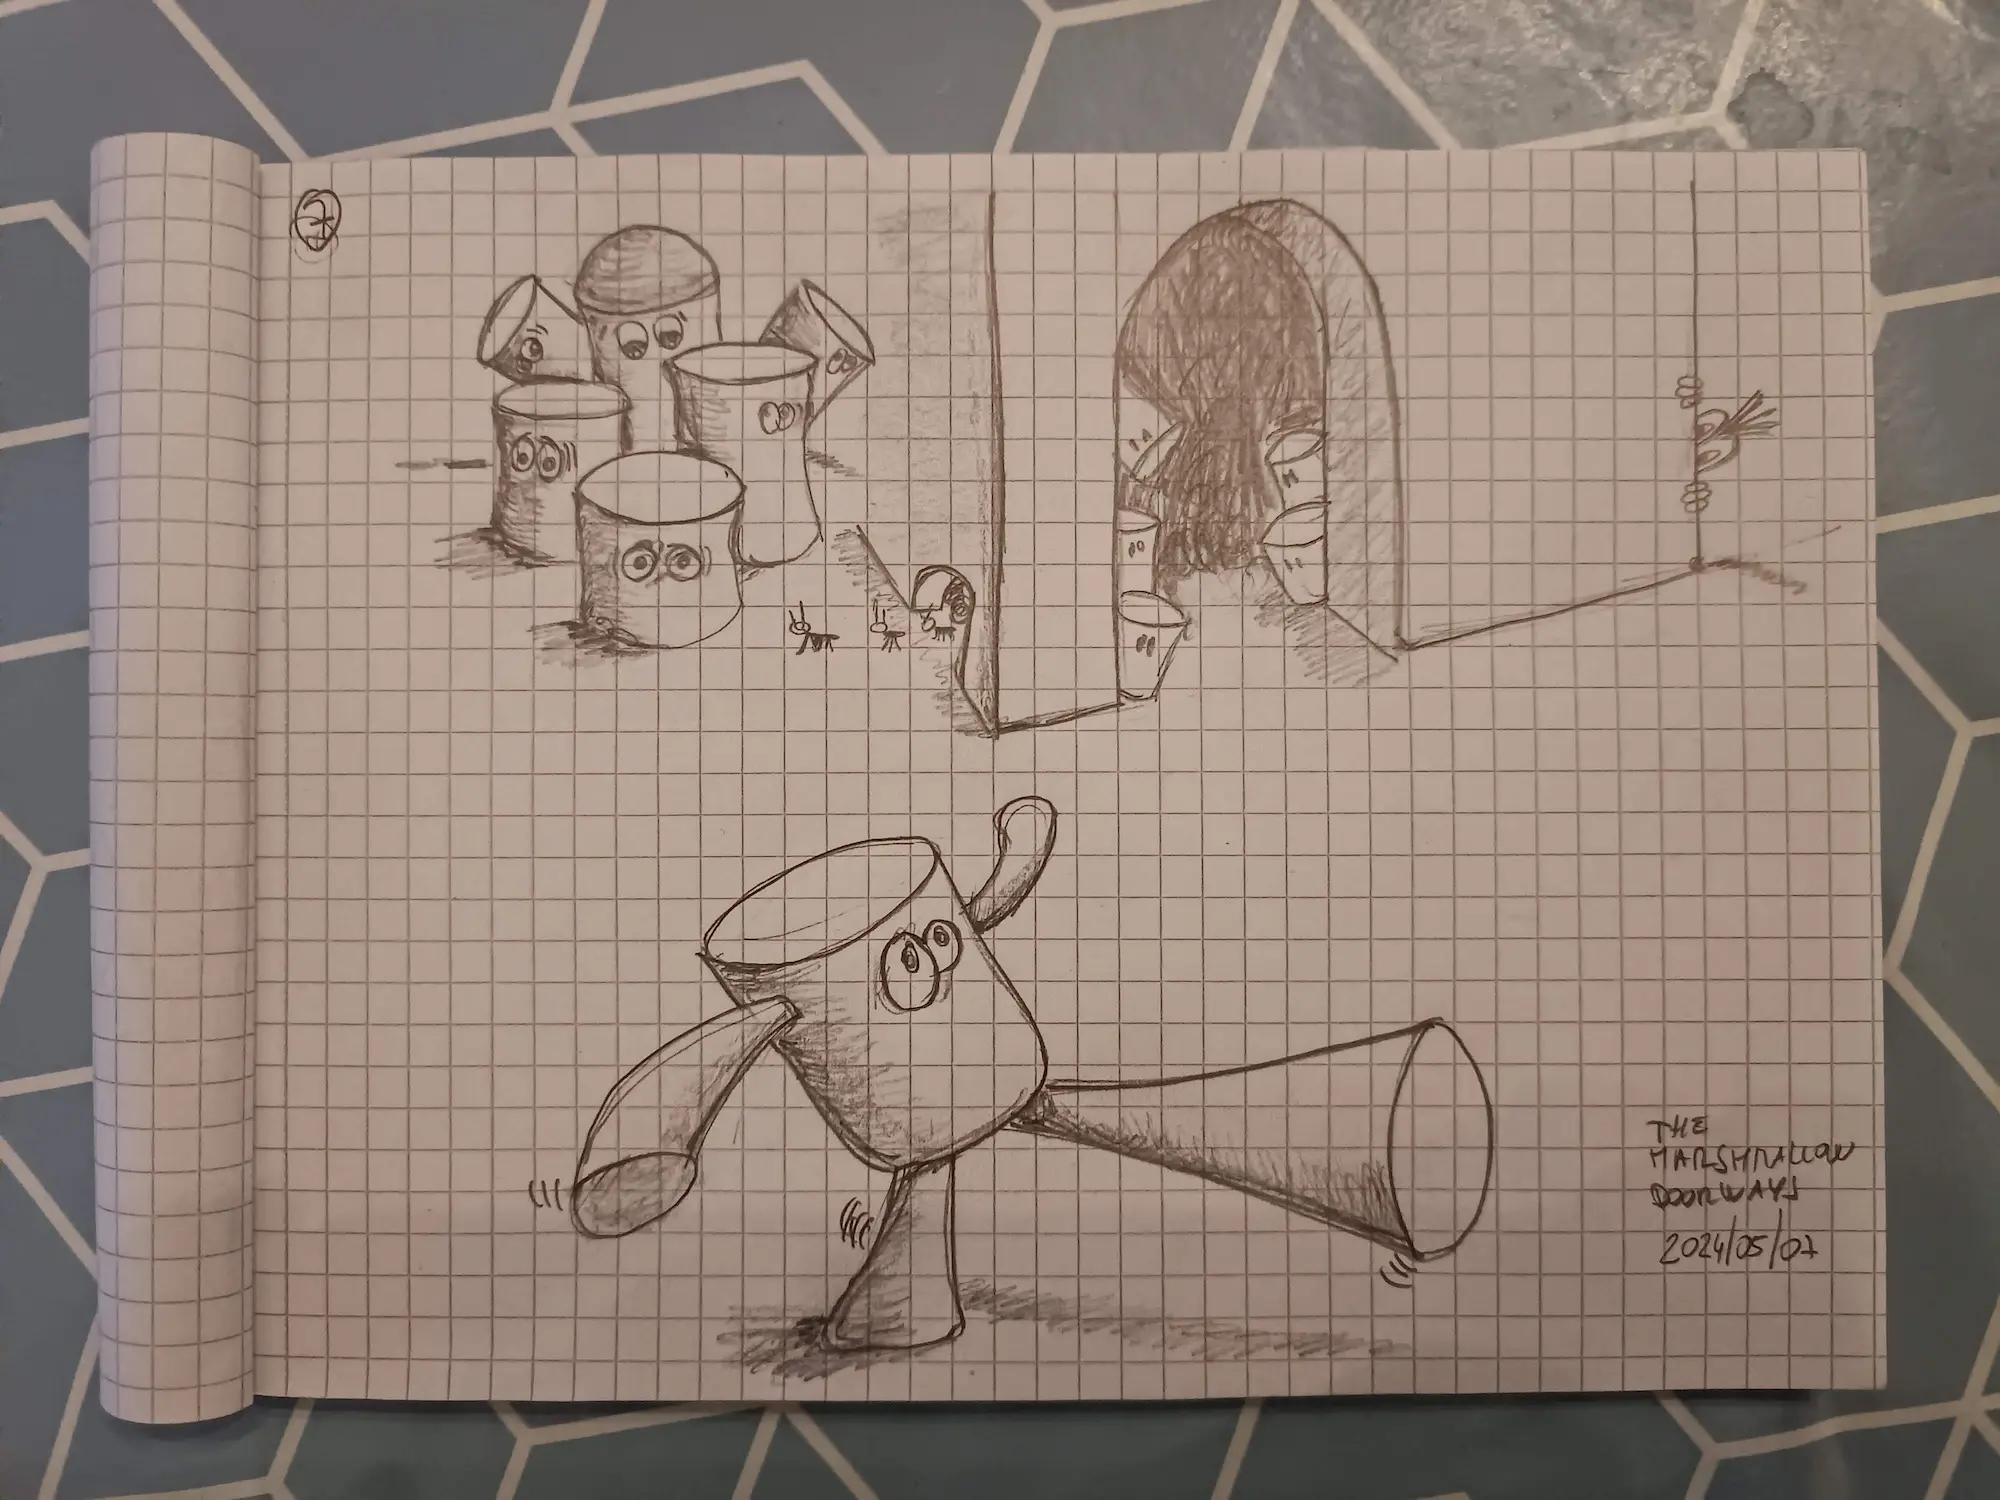 THE
MARSHMALLOW
DOORWAYS
2024/05/07